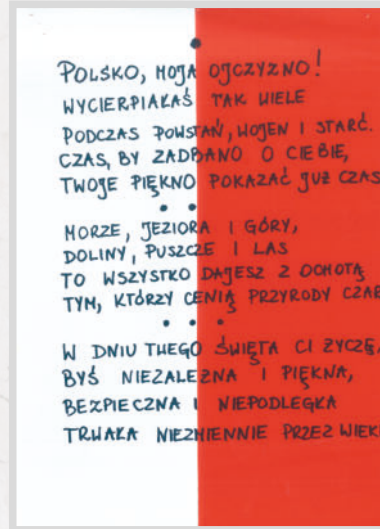 POLSKO, MOJA OJCZYZNO!
WYCIERPIAŁAŚ TAK WIELE
PODCZAS POWSTAŃ, WOJEN I STARĆ.
CZAS, BY ZADBANO O CIEBIE,
TWOJE PIĘKNO POKAZAĆ JUŻ CZAS
MORZE, JEZIORA I GÓRY,
DOLINY, PUSZCZE I LAS
TO WSZYSTKO DAJESZ Z OCHOTĄ
TYM, KTÓRZY CENIĄ PRZYRODY CZAR
W DNIU TWEGO ŚWIĘTA CI ŻYCZĘ,
BYŚ NIEZALEŻNA I PIĘKNA,
BEZPIECZNA I NIEPODLEGŁA
TRWAŁA NIEZMIENNIE PRZEZ WIEKI